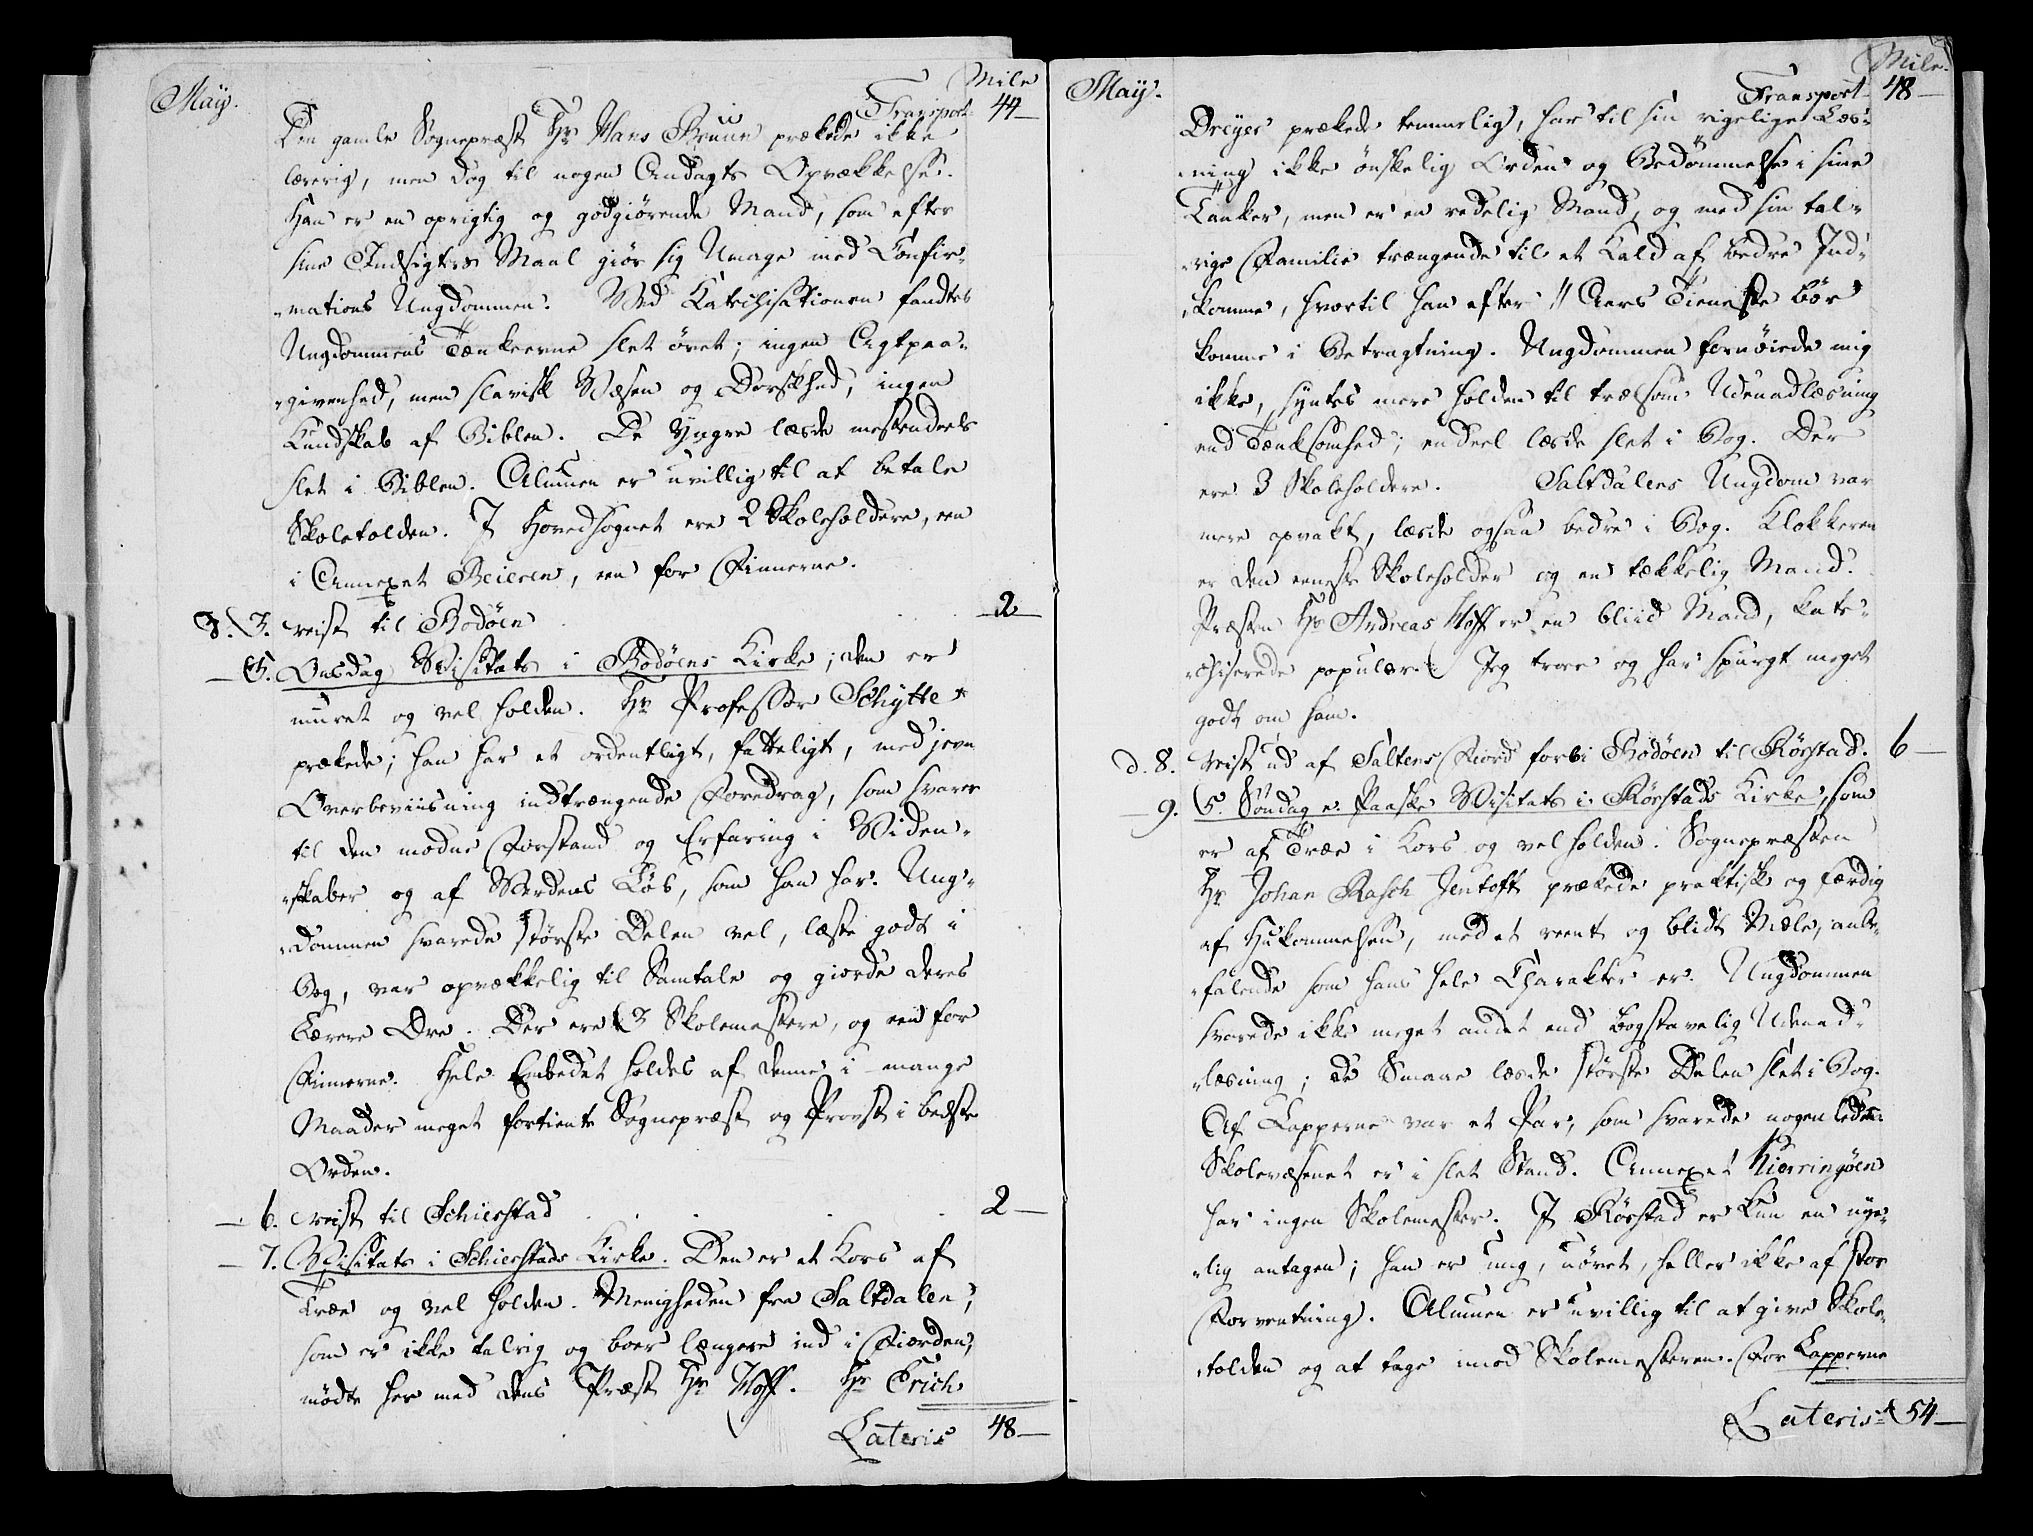 May.
Mile
Transport 44—
Den gamle Sognepræst Hr Hans Bruun prækede ikke
lærerig, men dog til nogen Andagts Opvækkelse.
Han er en oprigtig og godgiørende Mand, som efter
sine Indsigters Maal giør sig Umage med Confir-
-mations Ungdommen. Ved Katechisationen fandtes
Ungdommens Tænkeevne slet øvet; ingen Agtpaa-
-givenhed, men slavisk Væsen og Dorskhed, ingen
Kundskab af Biblen. De Yngre læsde mestendeels
slet i Biblen. Almuen er uvillig til at betale
Skoletolden. I Hovedsognet ere 2 Skoleholdere, een
i Annexet Beieren, een for Finnerne.
d. 3. reist til Bodøen 2—
— 5. Onsdag Visitats i Bodøens Kirke; den er
muret og vel holden. Hr Professor Schytte
prækede; han har et ordentligt, fatteligt, med jevn
Overbeviisning indtrængende Foredrag, som svarer
til den modne Forstand og Erfaring i Viden-
-skaber og af Verdens Løb, som han har. Ung-
-dommen svarede største Delen vel, læste godt i
Bog, var opvækkelig til Samtale og giorde deres
Lærere Ære. Der ere 3 Skolemestere, og een for
Finnerne. Hele Embedet holdes af denne i mange
Maader meget fortiente Sognepræst og Provst i bedste
Orden.
— 6. reist til Schierstad 2—
— 7. Visitats i Schierstads Kirke. Den er et Kors af
Træe og vel holden. Menigheden fra Saltdalen,
som er ikke talrig og boer længere ind i Fiorden,
mødte her med dens Præst Hr Hoff. Hr Erich
Lateris 48—
May.
Mile.
Transport 48—
Dreyer prækede temmelig, har til sin rigelige Læs-
-ning ikke ønskelig Orden og Bedømmelse i sine
Tanker, men er en redelig Mand, og med sin tal-
-rige Familie trængende til et Kald af bedre Ind-
-komme, hvortil han efter 11 Aars Tieneste bør
komme i Betragtning. Ungdommen fornøiede mig
ikke, syntes mere holden til trælsom Udenadlæsning
end Tænksomhed; endeel læsde slet i Bog. Der
ere 3 Skoleholdere. Saltdalens Ungdom var
mere opvakt, læsde ogsaa bedre i Bog. Klokkeren
er den eeneste Skoleholder og en tækkelig Mand.
Præsten Hr Andreas Hoff er en bliid Mand, kate-
-chiserede populær. Jeg troer og har spurgt meget
godt om ham.
d. 8. reist ud af Saltens Fiord forbi Bodøen til Rørstad. 6—
— 9. 5. Søndag e. Paaske Visitats i Rørstads Kirke, som
er af Træe i Kors og vel holden. Sognepræsten
Hr Johan Rasch Jentoft prækede praktisk og færdig
af Hukommelsen, med et reent og blidt Mæle, anbe-
-falende som hans hele Charakter er. Ungdommen
svarede ikke meget andet end bogstavelig Udenad-
-læsning; de Smaae læsde største Delen slet i Bog.
Af Lapperne var et Par, som svarede nogenledes.
Skolevæsenet er i slet Stand. Annexet Kierringøen
har ingen Skolemester. I Rørstad er kun en nye-
-lig antagen; han er ung, uøvet, heller ikke af stor
Forventning. Almuen er uvillig til at give Skole-
-tolden og at tage imod Skolemesteren. For Lapperne
Lateris 54—